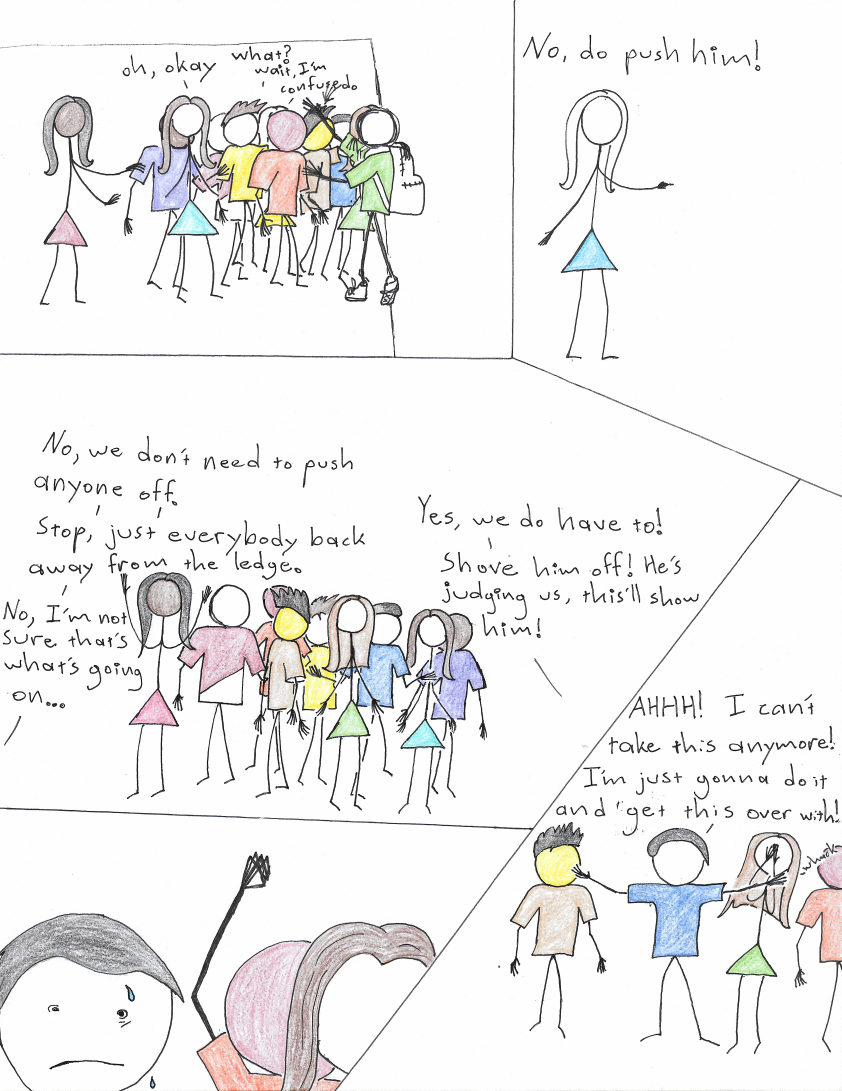 oh, okay
what?
wait, I'm
confused.
No, do push him!
No, we don't need to push
anyone off.
Stop, just everybody back
away from the ledge.
No, I'm not
sure that's
what's going
on...
Yes, we do have to!
Shove him off! He's
judging us, this'll show
him!
AHHH! I can't
take this anymore!
I'm just gonna do it
and get this over with!
-whack-